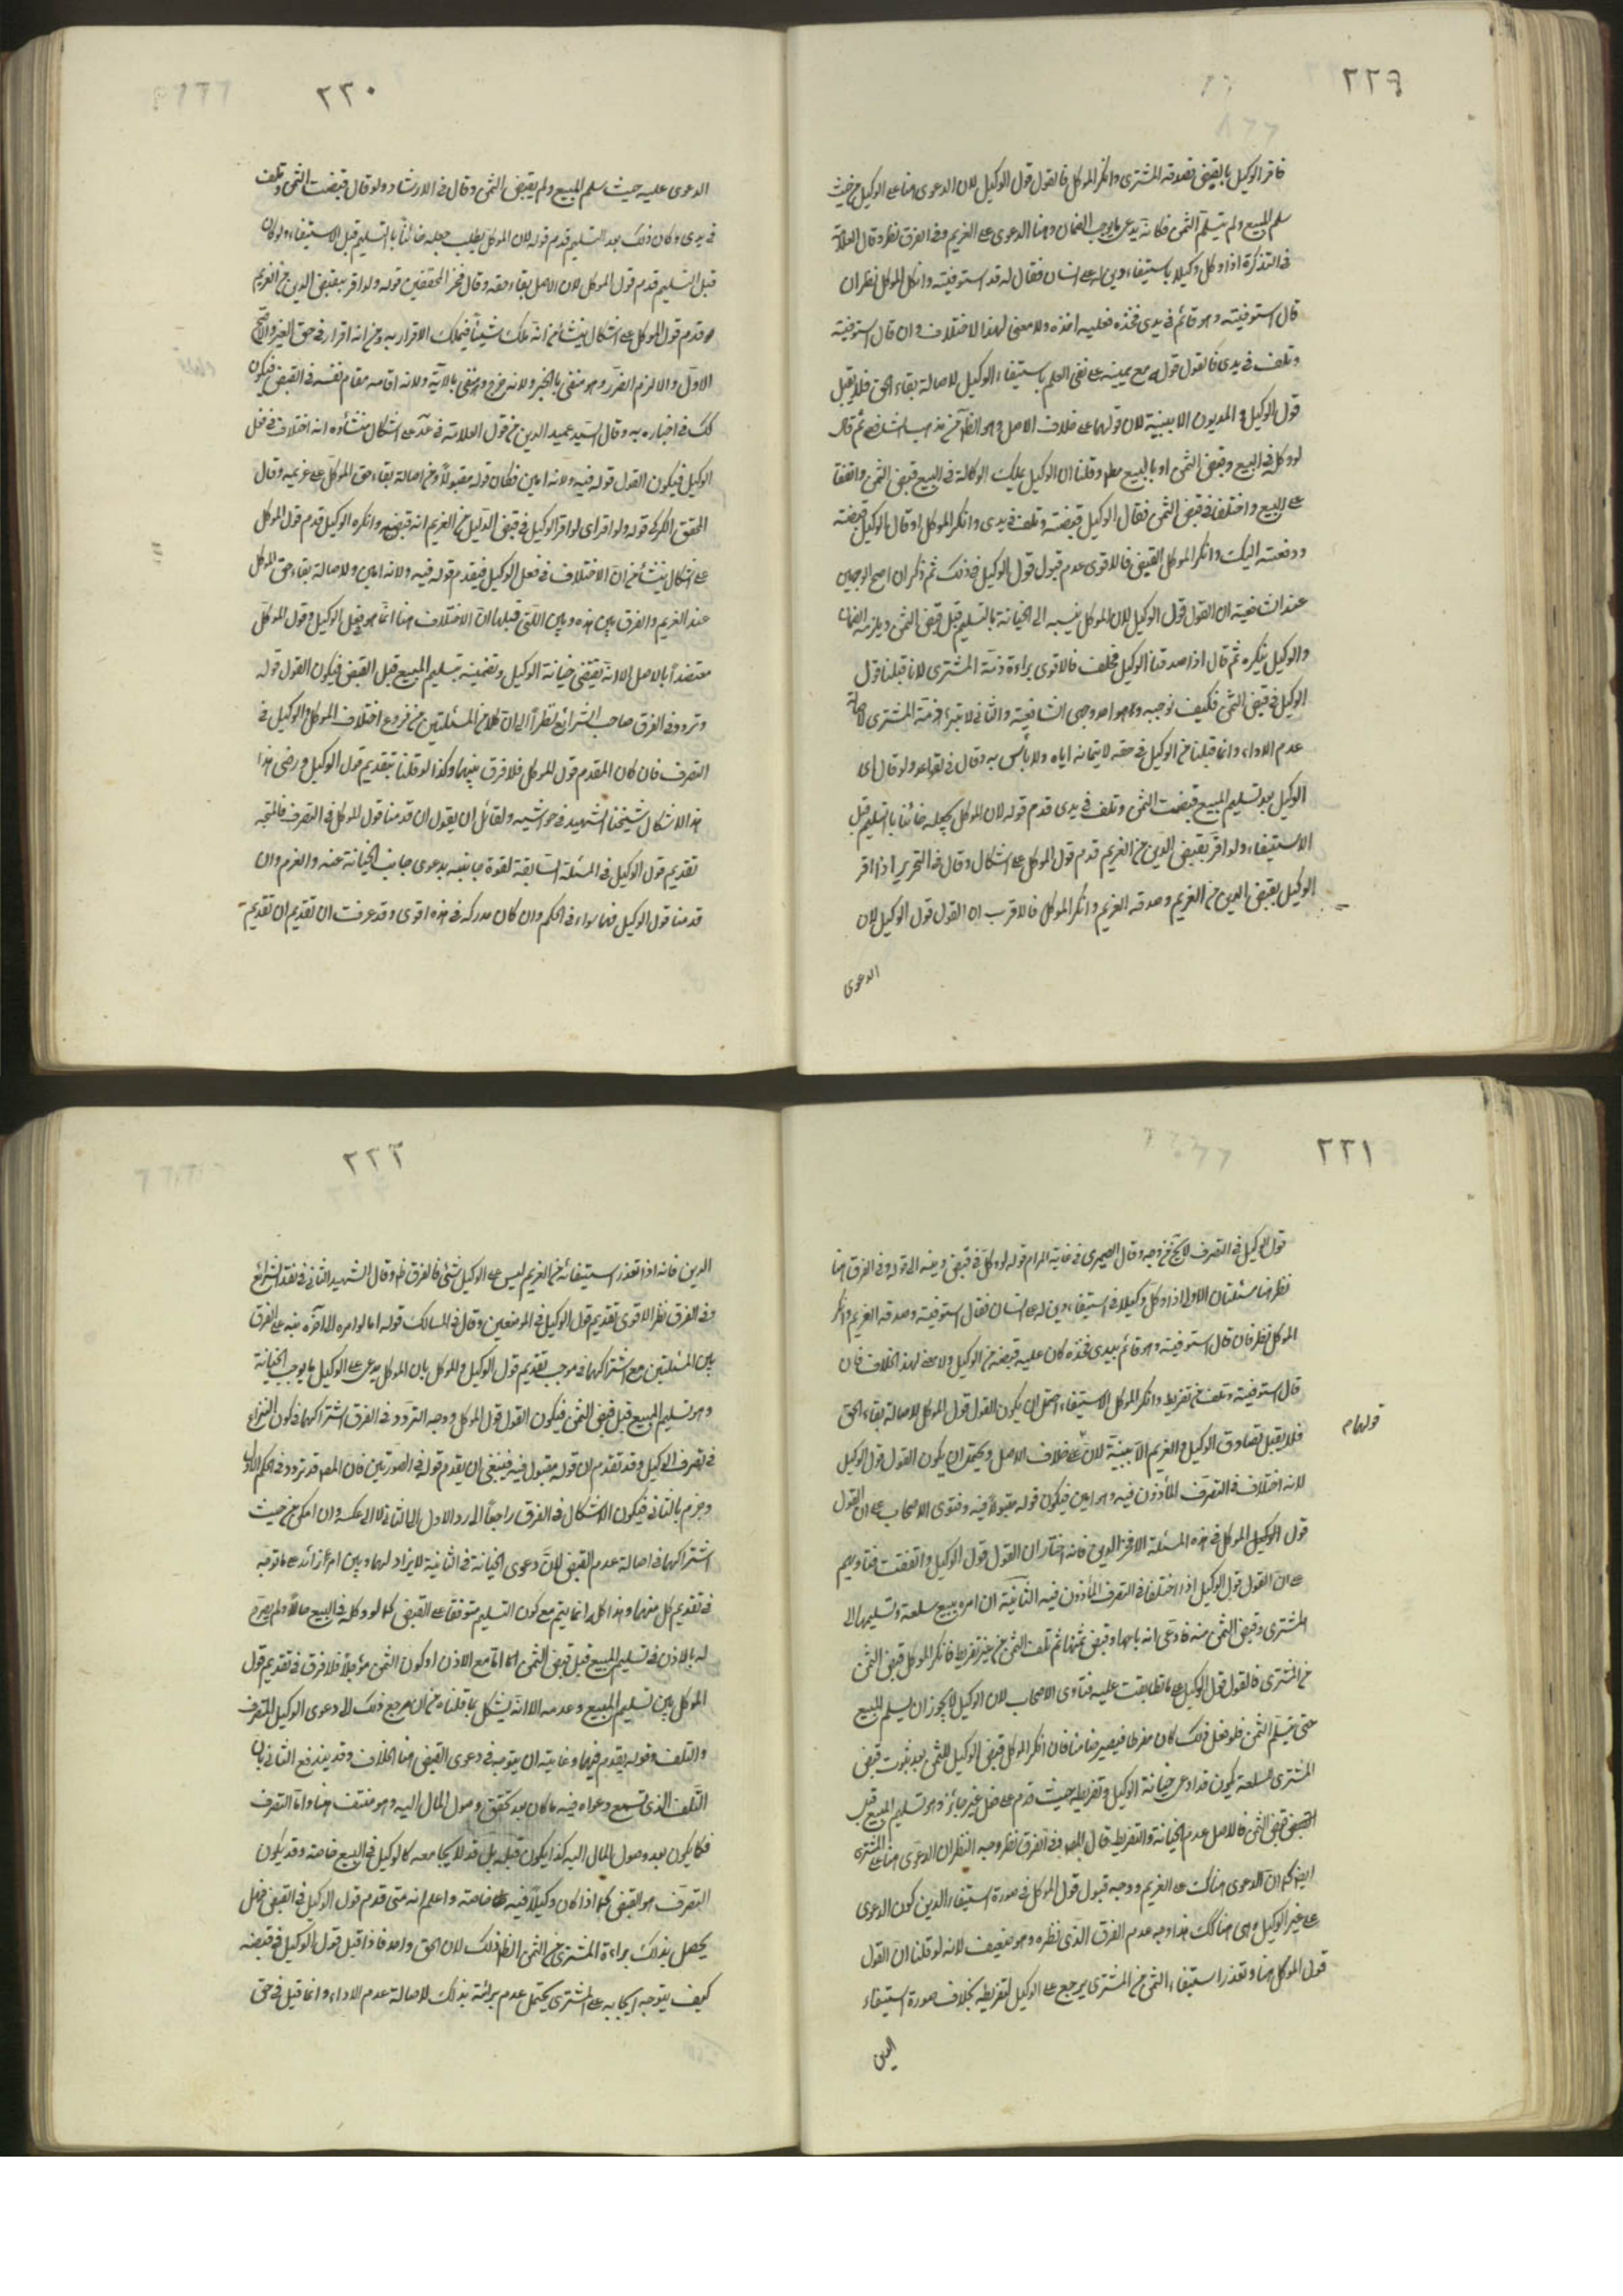 ٢٢٩
فاقر الوكيل بالقبض فصدقه المشترى وانكر الموكل فالقول قول الوكيل لان الدعوى هنا على الوكيل من حيث
سلم المبيع ولم يتسلم الثمن فكانه يدعى ما يوجب الضمان وهنا الدعوى على الغريم وفى الفرق نظر وقال العلامة
فى التذكرة اذا وكل وكيلا باستيفاء دين له على انسان فقال له قد استوفيته وانكر الموكل نظر ان
قال استوفيته وهو قائم فى يدى فخذه فعليه اخذه ولا معنى لهذا الاختلاف وان قال استوفيته
وتلف فى يدى فالقول قوله مع يمينه على نفى العلم باستيفاء الوكيل لاصالة بقاء الحق فلا يقبل
قول الوكيل والمديون الا ببينة لان قولهما على خلاف الاصل وهو الظاهر من مذهب الشافعى ثم قال
لو وكله فى البيع وقبض الثمن او بالبيع مطلقا وقلنا ان الوكيل يملك بالوكالة فى البيع قبض الثمن واتفقا
على البيع واختلفا فى قبض الثمن فقال الوكيل قبضته وتلف فى يدى وانكر الموكل او قال الوكيل قبضته
ودفعته اليك وانكر الموكل القبض فالاقوى عدم قبول قول الوكيل فى ذلك ثم ذكر ان اصح الوجهين
عند الشافعية ان القول قول الوكيل لان الموكل ينسبه الى الخيانة بالتسليم قبل قبض الثمن ويلزمه الضمان
والوكيل ينكره ثم قال اذا صدقنا الوكيل فحلف فالاقوى براءة ذمة المشترى لانا قبلنا قول
الوكيل فى قبض الثمن فكيف نوجبه وهو احد وجهى الشافعية والثانى لا تبرء ذمة المشترى لاصالة
عدم الاداء وانما قبلنا من الوكيل فى حقه لايتمانه اياه ولا بأس به وقال فى القواعد ولو قال اى
الوكيل بعد تسليم المبيع قبضت الثمن وتلف فى يدى قدم قوله لان الموكل يجعله خائنا بالتسليم قبل
الاستيفاء ولو اقر بقبض الدين من الغريم قدم قول الموكل على اشكال وقال فى التحرير اذا اقر
الوكيل بقبض الدين من الغريم وصدقه الغريم وانكر الموكل فالاقرب ان القول قول الوكيل لان
الدعوى
٢٣٠
الدعوى عليه حيث سلم المبيع ولم يقبض الثمن وقال فى الارشاد ولو قال قبضت الثمن وتلف
فى يدى وكان ذلك بعد التسليم قدم قوله لان الموكل يطلب جعله خائناً بالتسليم قبل الاستيفاء ولو كان
قبل التسليم قدم قول الموكل لان الاصل بقاء حقه وقال فخر المحققين قوله ولو اقر بقبض الدين من الغريم
قدم قول الموكل على اشكال ينشأ من انه يملك شيئاً فيملك الاقرار به ومن انه اقرار فى حق الغير والاصح
الاول والا لزم الضرر وهو منفى بالخبر ولانه حرج وهو منفى بالاية ولانه اقامه مقام نفسه فى القبض فيكون
كك فى اخباره به وقال السيد عميد الدين من قول العلامة فى عد على اشكال منشأوه انه اختلاف فى فعل
الوكيل فيكون القول قوله فيه ولانه امين فكان قوله مقبولاً ومن اصالة بقاء حق الموكل على غريمه وقال
المحقق الكركى قوله ولو اقر اى لو اقر الوكيل فى قبض الدين من الغريم انه قبضه وانكره الوكيل قدم قول الموكل
على اشكال ينشأ من ان الاختلاف فى فعل الوكيل فيقدم قوله فيه ولانه امين ولاصالة بقاء حق الموكل
عند الغريم والفرق بين هذه وبين التى قبلها ان الاختلاف هنا انما هو فى فعل الوكيل وقول الموكل
معتضداً بالاصل الا انه يقتضى خيانة الوكيل وتضمينه بتسليم المبيع قبل القبض فيكون القول قوله
وتردد فى الفرق صاحب الشرائع نظراً الى ان كلا من المسئلتين من فروع اختلاف الموكل والوكيل فى
التصرف فان كان المقدم قول الموكل فلا فرق بينهما وكذا لو قلنا بتقديم قول الوكيل ورضى هذا
هذا الاشكال شيخنا الشهيد فى حواشيه ولقائل ان يقول ان قدمنا قول الموكل فى التصرف فالمتجه
تقديم قول الوكيل فى المسئلة السابقة لقوة جانبه بدعوى جانب الخيانة عنه والغرم وان
قدمنا قول الوكيل فهما سواء فى الحكم وان كان مدركه فى هذه اقوى وقد عرفت ان تقديم ان تقديم
٢٣١
قول الوكيل فى التصرف لا يخ من وجه وقال الصيمرى فى غاية المرام قوله لو وكله فى قبض دينه الى قوله وفى الفرق
نظر هنا مسئلتان الاولى اذا وكل وكيلا فى استيفاء دين له على انسان فقال استوفيته وصدقه الغريم وانكر
الموكل نظر فان قال استوفيته وهو قائم بيدى فخذه كان عليه قبضه من الوكيل ولا معنى لهذا الخلاف فان
قال استوفيته وتلف من تفريط وانكر الموكل الاستيفاء احتمل ان يكون القول قول الموكل لاصالة بقاء الحق
فلا يقبل تصادق الوكيل والغريم الا ببينة لان على خلاف الاصل ويحتمل ان يكون القول قول الوكيل
قولهما م
لانه اختلاف فى التصرف المأذون فيه وهو امين فيكون قوله مقبولاً فيه وفتوى الاصحاب على ان القول
قول الوكيل الموكل فى هذه المسئلة الا فخر الدين فانه اختار ان القول قول الوكيل واتفقت فتاويهم
على ان القول قول الوكيل اذا اختلفا فى التصرف المأذون فيه الثانية ان امره ببيع سلعة وتسليمها الى
المشترى وقبض الثمن منه فادعى انه باعها وقبض ثمنها ثم تلف الثمن من غير تفريط فانكر الموكل قبض الثمن
من المشترى فالقول قول الوكيل على ما تطابقت عليه فتاوى الاصحاب لان الوكيل لا يجوز ان يسلم المبيع
حتى يتسلم الثمن فلو فعل ذلك كان مفرطا فيصير ضامنا فان انكر الموكل قبض الوكيل للثمن بعد ثبوت قبض
المشترى السلعة يكون قد ادعى خيانة الوكيل وتفريطه حيث قدم على فعل غير جائز وهو تسليم المبيع قبل
قبض الثمن فالاصل عدم الخيانة والتفريط قال المص وفى الفرق نظر وجه النظر ان الدعوى هنا على المشترى
ايضا كما ان الدعوى هناك على الغريم ووجه قبول قول الموكل فى صورة استيفاء الدين كون الدعوى
على غير الوكيل وهى هنا كك هذا وجه عدم الفرق الذى نظره وهو ضعيف لانه لو قلنا ان القول
قول الموكل هنا وتعذر استيفاء الثمن من المشترى يرجع على الوكيل لتفريطه بخلاف صورة استيفاء
الدين
٢٣٢
الدين فانه اذا تعذر استيفائه من الغريم ليس على الوكيل شئ فالفرق ظ وقال الشهيد الثانى فى نقد الشرائع
وفى الفرق نظر الاقوى تقديم قول الوكيل فى الموضعين وقال فى المسالك قوله اما لو امره الى اخره نبه على الفرق
بين المسئلتين مع اشتراكهما فى موجب تقديم قول الوكيل والموكل بان الموكل يدعى على الوكيل ما يوجب الخيانة
وهو تسليم المبيع قبل قبض الثمن فيكون القول قول الموكل ووجه التردد فى الفرق اشتراكهما فى كون النزاع
فى تصرف الوكيل وقد تقدم ان قوله مقبول فيه فينبغى ان يقدم قوله فى الصورتين فان المص قد تردد فى الحكم الاول
وجزم بالثانى فيكون الاشكال فى الفرق راجعاً الى رد الاول الى الثانى لا الى عكسه وان امكن من حيث
اشتراكهما فى اصالة عدم القبض لان دعوى الخيانة فى الثانية
فى تقديم كل منهما وهذا كله انما يتم مع كون التسليم متوقفاً على القبض كما لو وكله فى البيع حالاً ولم يصرح
له بالاذن فى تسليم المبيع قبل قبض الثمن اما مع الاذن او كون الثمن مؤجلاً فلا فرق فى تقديم قول
الموكل بين تسليم المبيع وعدمه الا انه يشكل بما قلناه من ان مرجع ذلك الى دعوى الوكيل التصرف
والتلف وقوله يقدم فيهما وغايته ان يتوجه فى دعوى القبض هنا الخلاف وقد يندفع الثانى بان
التلف الذى تسمع دعواه فيه ما كان بعد تحقق وصول المال اليه وهو منتف هنا واما التصرف
فكما يكون بعد وصول المال اليه كذا يكون قبله بل قد لا يجامعه كالوكيل فى البيع خاصة وقد يكون
التصرف هو القبض كما اذا كان وكيلا فيه خاصة واعلم انه متى قدم قول الوكيل فى القبض فهل
يحصل بذلك براءة المشترى من الثمن الظ ذلك لان الحق واحد فاذا قبل قول الوكيل فى قبضه
كيف يتوجه ايجابه على المشترى يحتمل عدم برائته بذلك لاصالة عدم الاداء وانما قبل فى حق